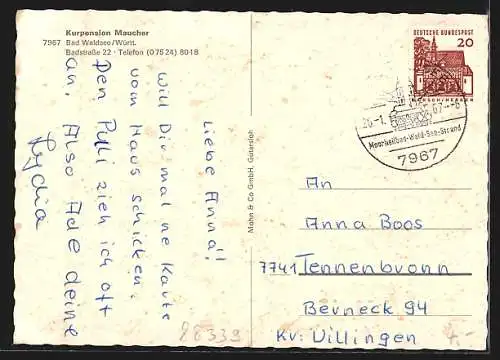 Kurpension Maucher
7967 Bad Waldsee/Württ.
Badstraße 22 · Telefon (0 75 24) 80 18
Liebe Anna!
Will Dir mal ne Karte
vom Haus schicken.
Den Pulli zieh ich oft
an. Also Ade deine
Lydia
Mohn & Co GmbH, Gütersloh
DEUTSCHE BUNDESPOST
20
LORSCH/HESSEN
67--8
Moorheilbad-Wald-See-Strand
7967
An
Anna Boos
7741 Tennenbronn
Berneck 94
Kv: Villingen
4.-